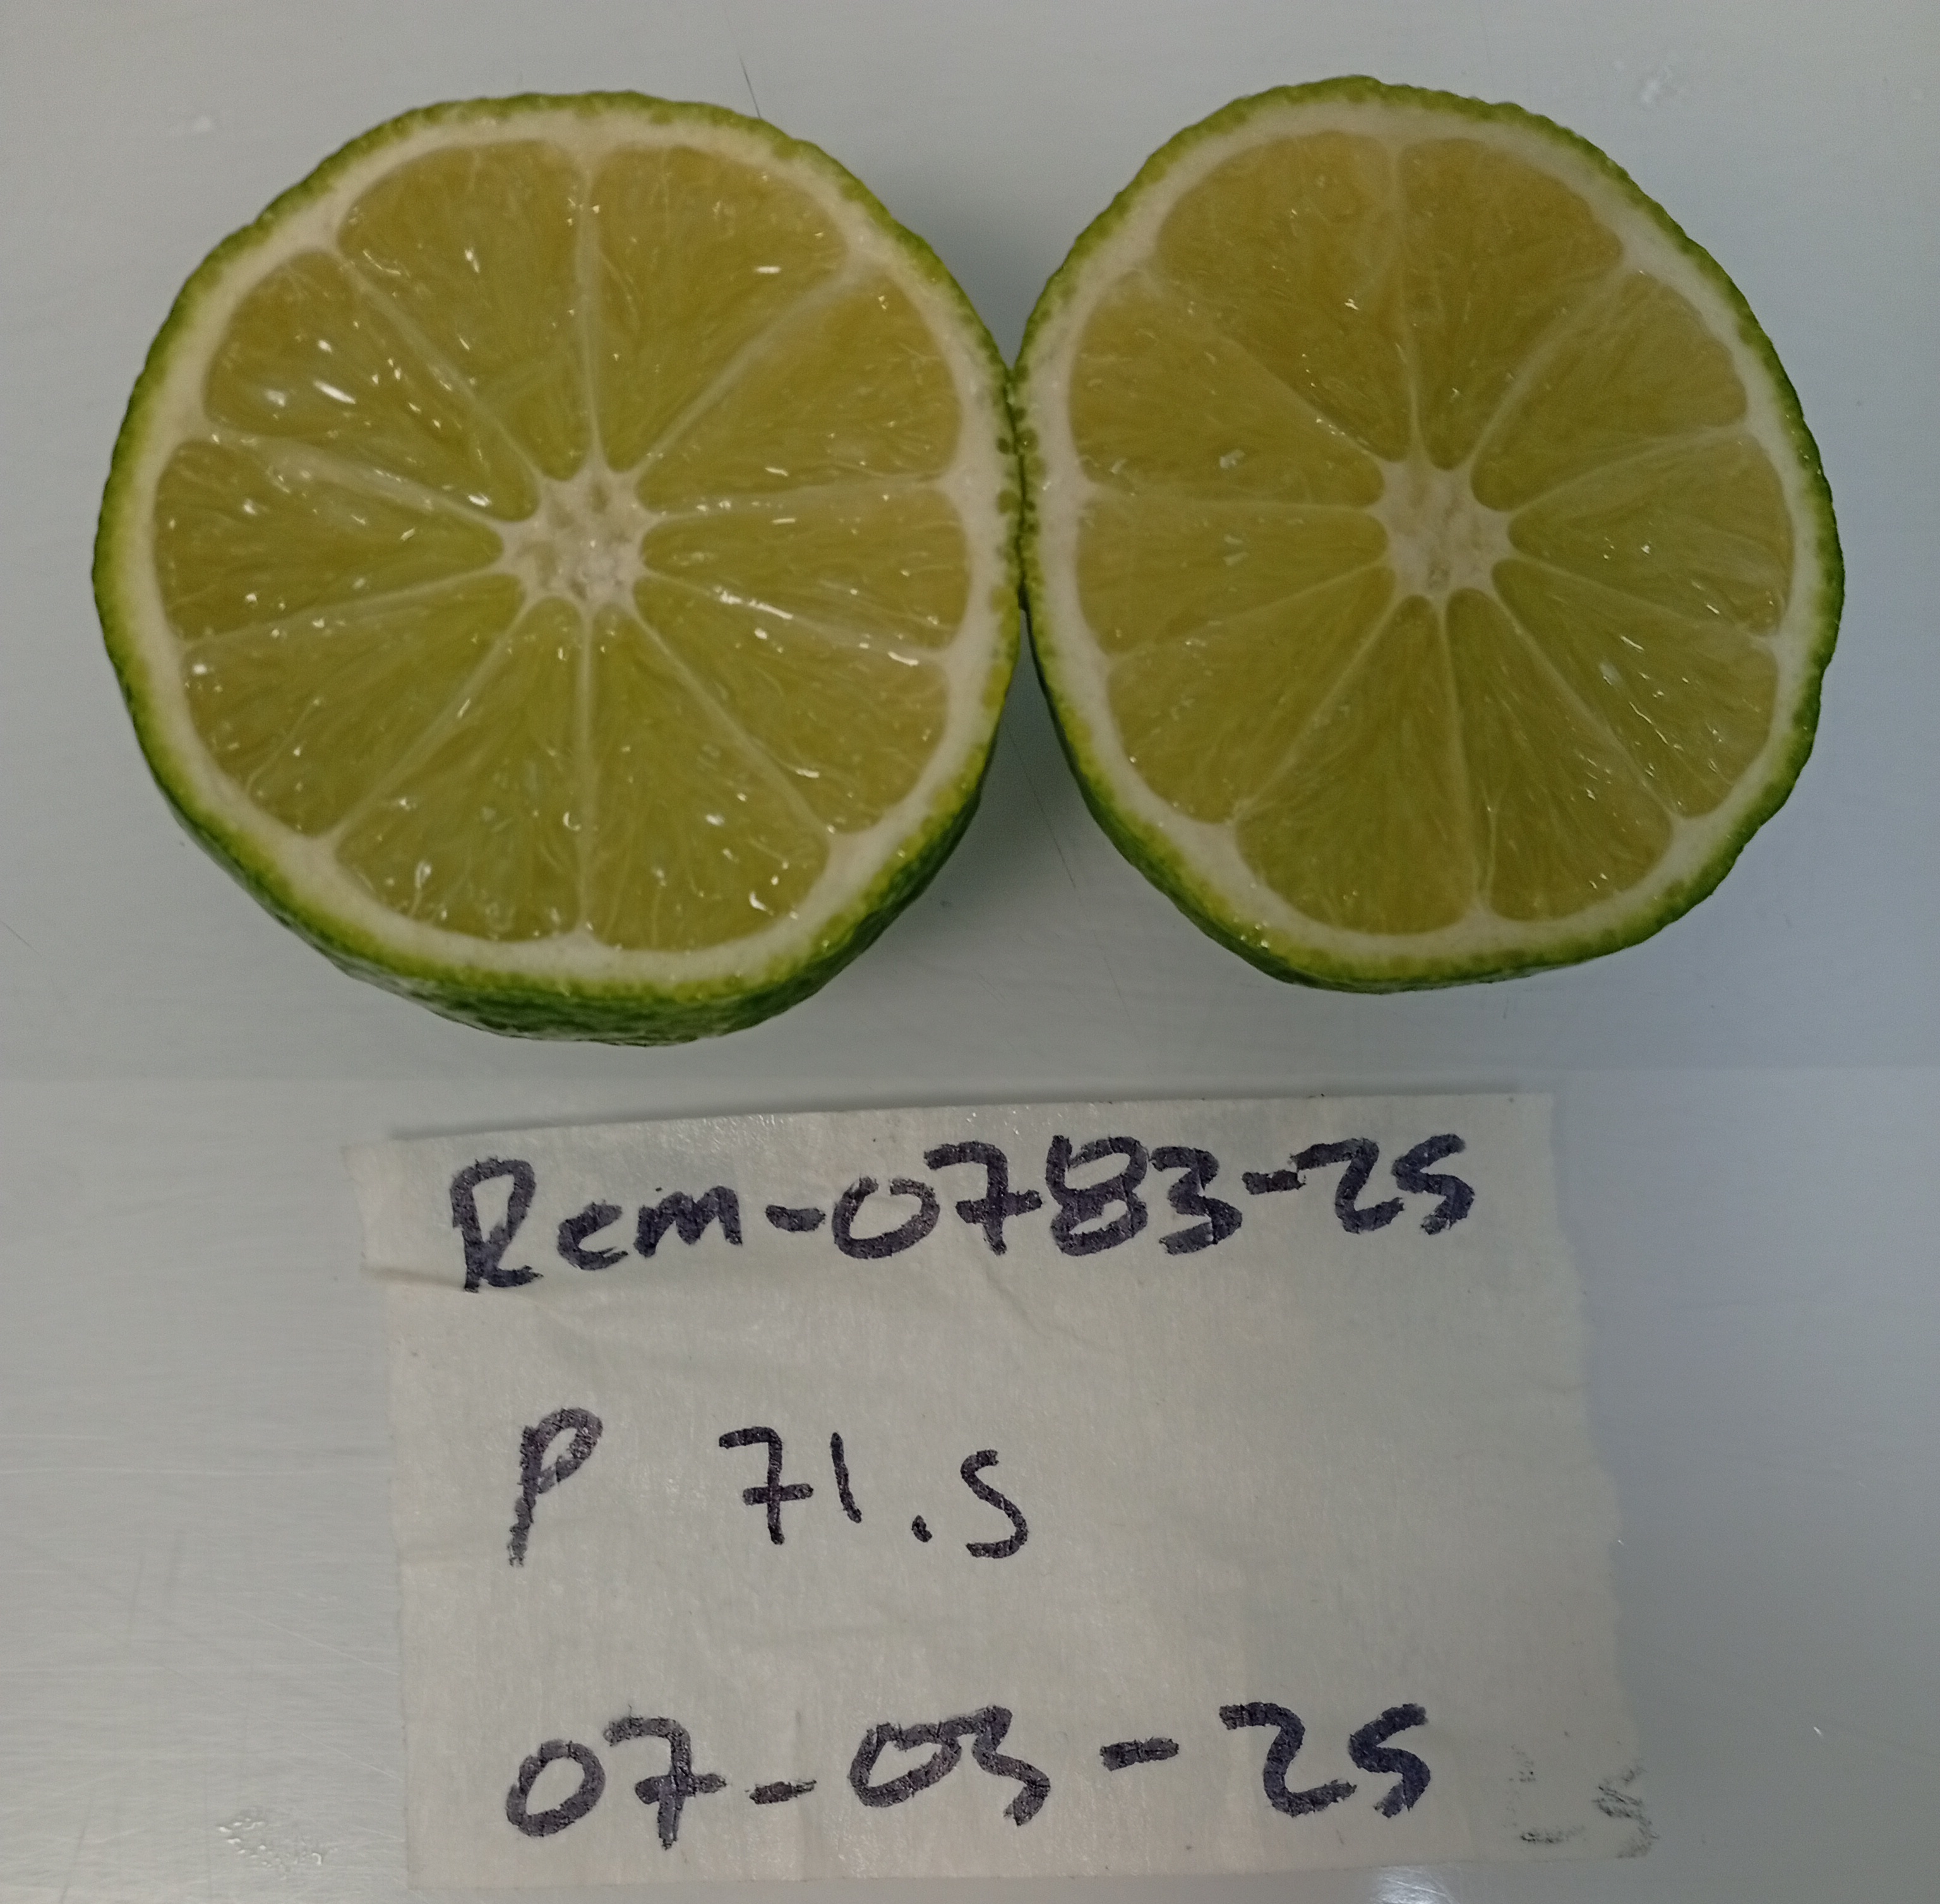 Rem-0783-25
P 71.5
07-03-25